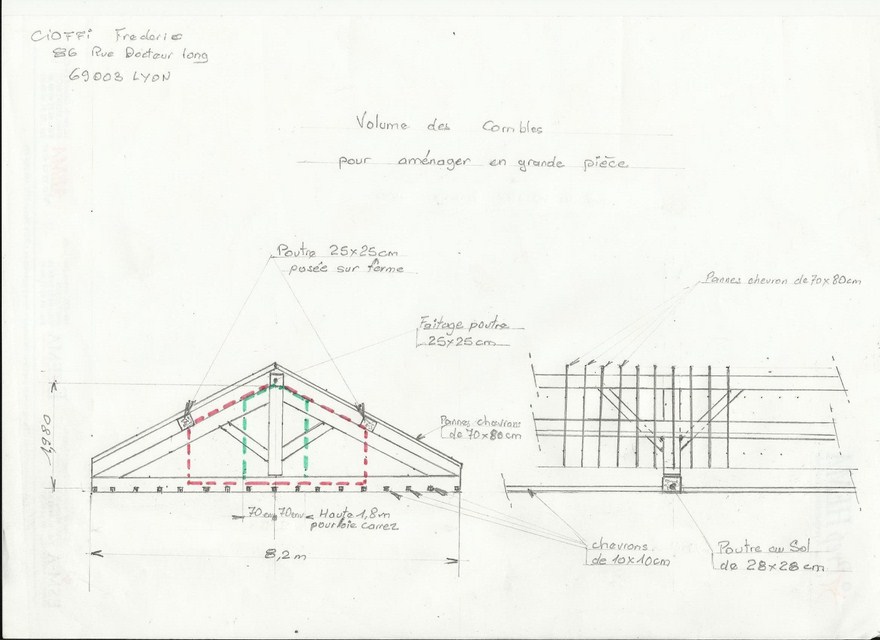 CiOFFi Frederic
86 Rue Docteur long
69003 LYON
Volume des Combles
pour aménager en grande pièce
Poutre 25x25cm
posée sur ferme
Faitage poutre
25x25cm
Pannes chevron de 70x80cm
Pannes chevrons
de 70x80cm
70cm 70cm Haute 1,8m
pour loie carrez
8,2m
chevrons
de 10x10cm
Poutre au Sol
de 28x28cm